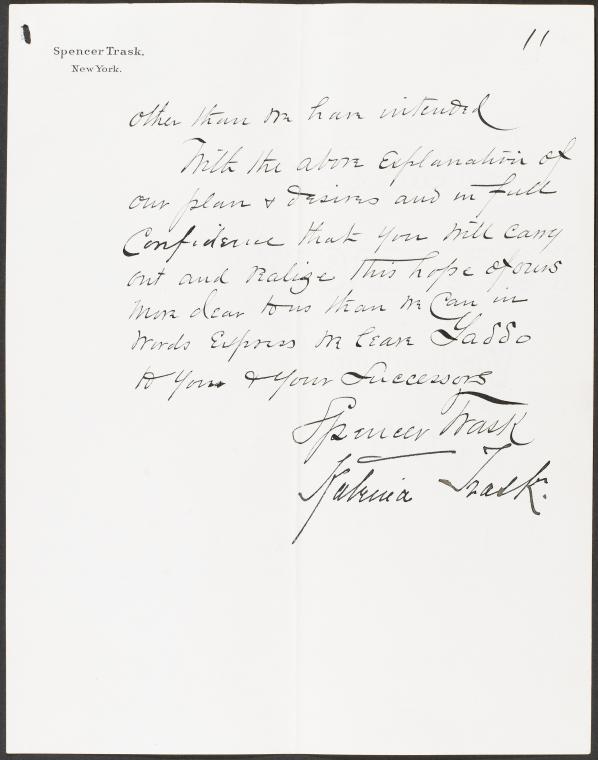 Spencer Trask.
New York.
11
other than we have intended
With the above explanation of
our plan & desires and in full
Confidence that you will carry
out and realize this hope of ours
more dear to us than we can in
words Express we leave Yaddo
to you & your Successors
Spencer Trask
Katrina Trask.